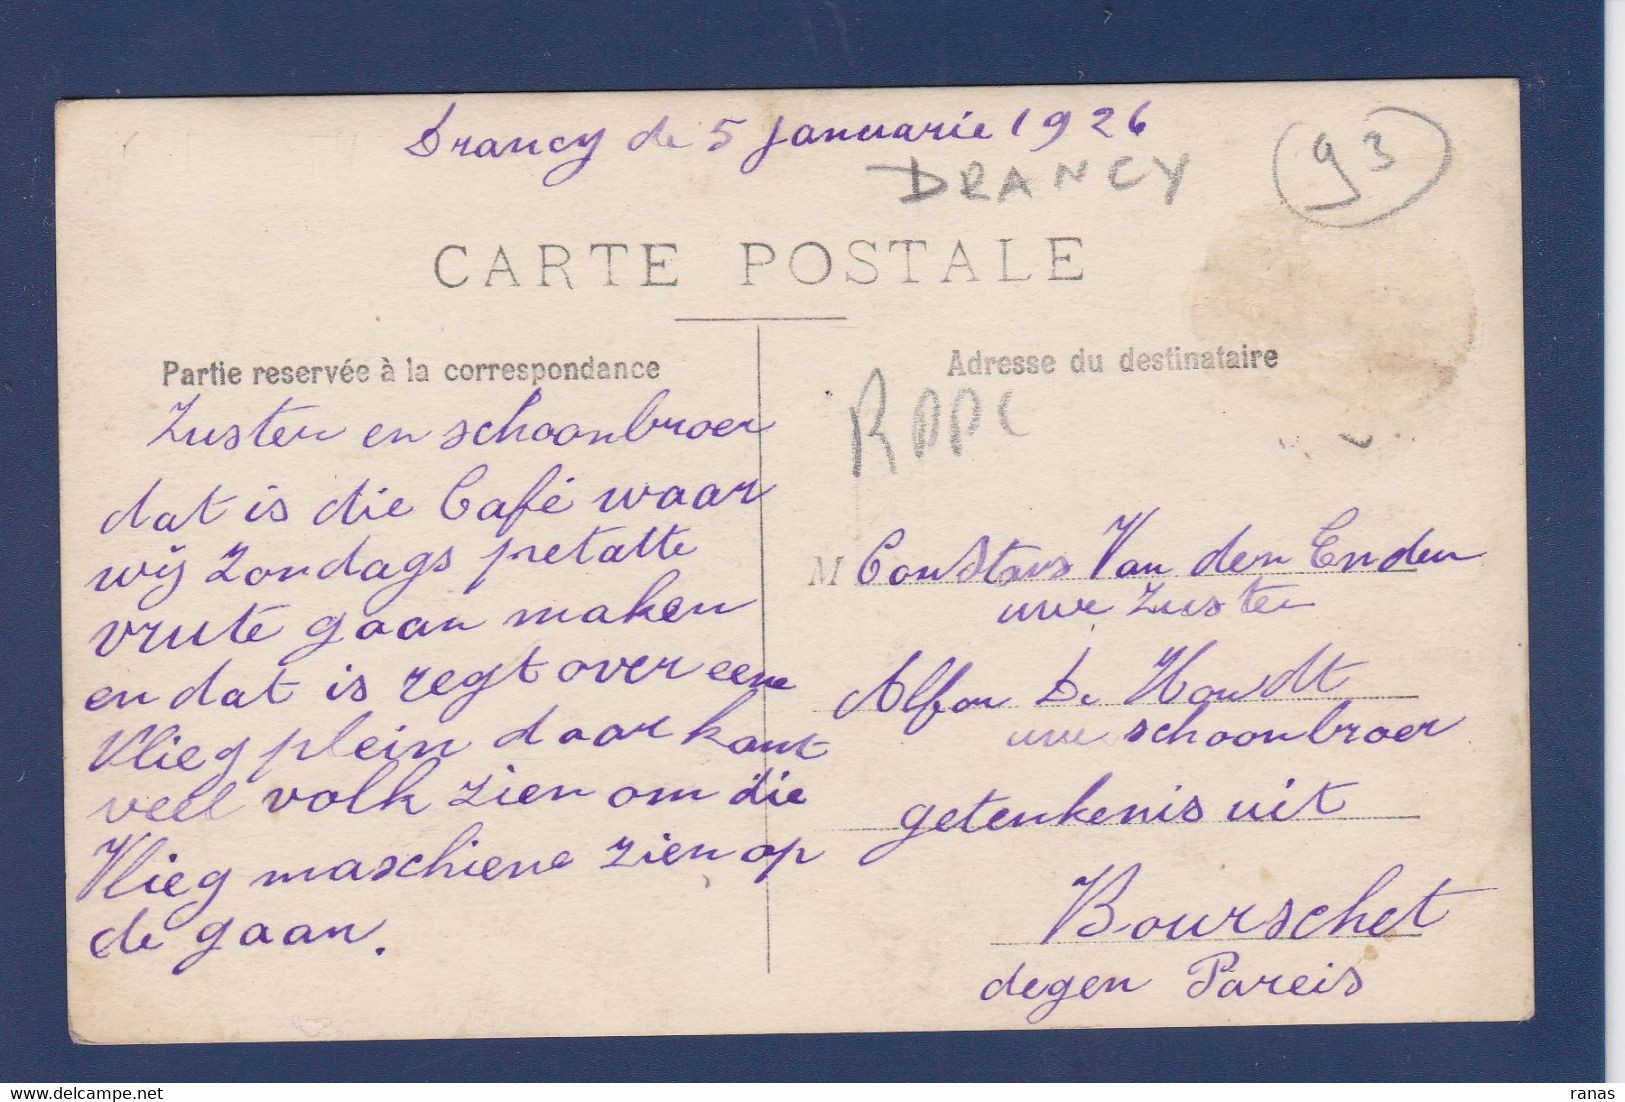 Drancy de 5 Januarie 1926
DRANCY
93
CARTE POSTALE
Partie reservée à la correspondance
Zuster en schoonbroer
dat is die Café waar
wij Zondags petatte
vrute gaan maken
en dat is regt over eene
Vlieg plein daar kant
veel volk zien om die
Vlieg maschiene zien op
de gaan.
Adresse du destinataire
RPPC
M Constans Van den Enden
uwe Zuster
Alfon De Howdt
uwe schoonbroer
getenkenis uit
Bourschet
degen Pareis
ranas